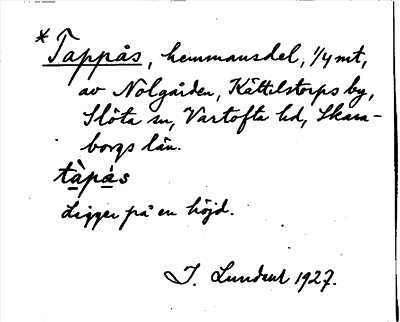 *Tappås, hemmansdel, 1/4 mt,
av Nolgården, Kättilstorps by,
Slöta sn, Vartofta hd, Skara-
borgs län.
tàpás
Ligger på en höjd.
J. Lundahl 1927.